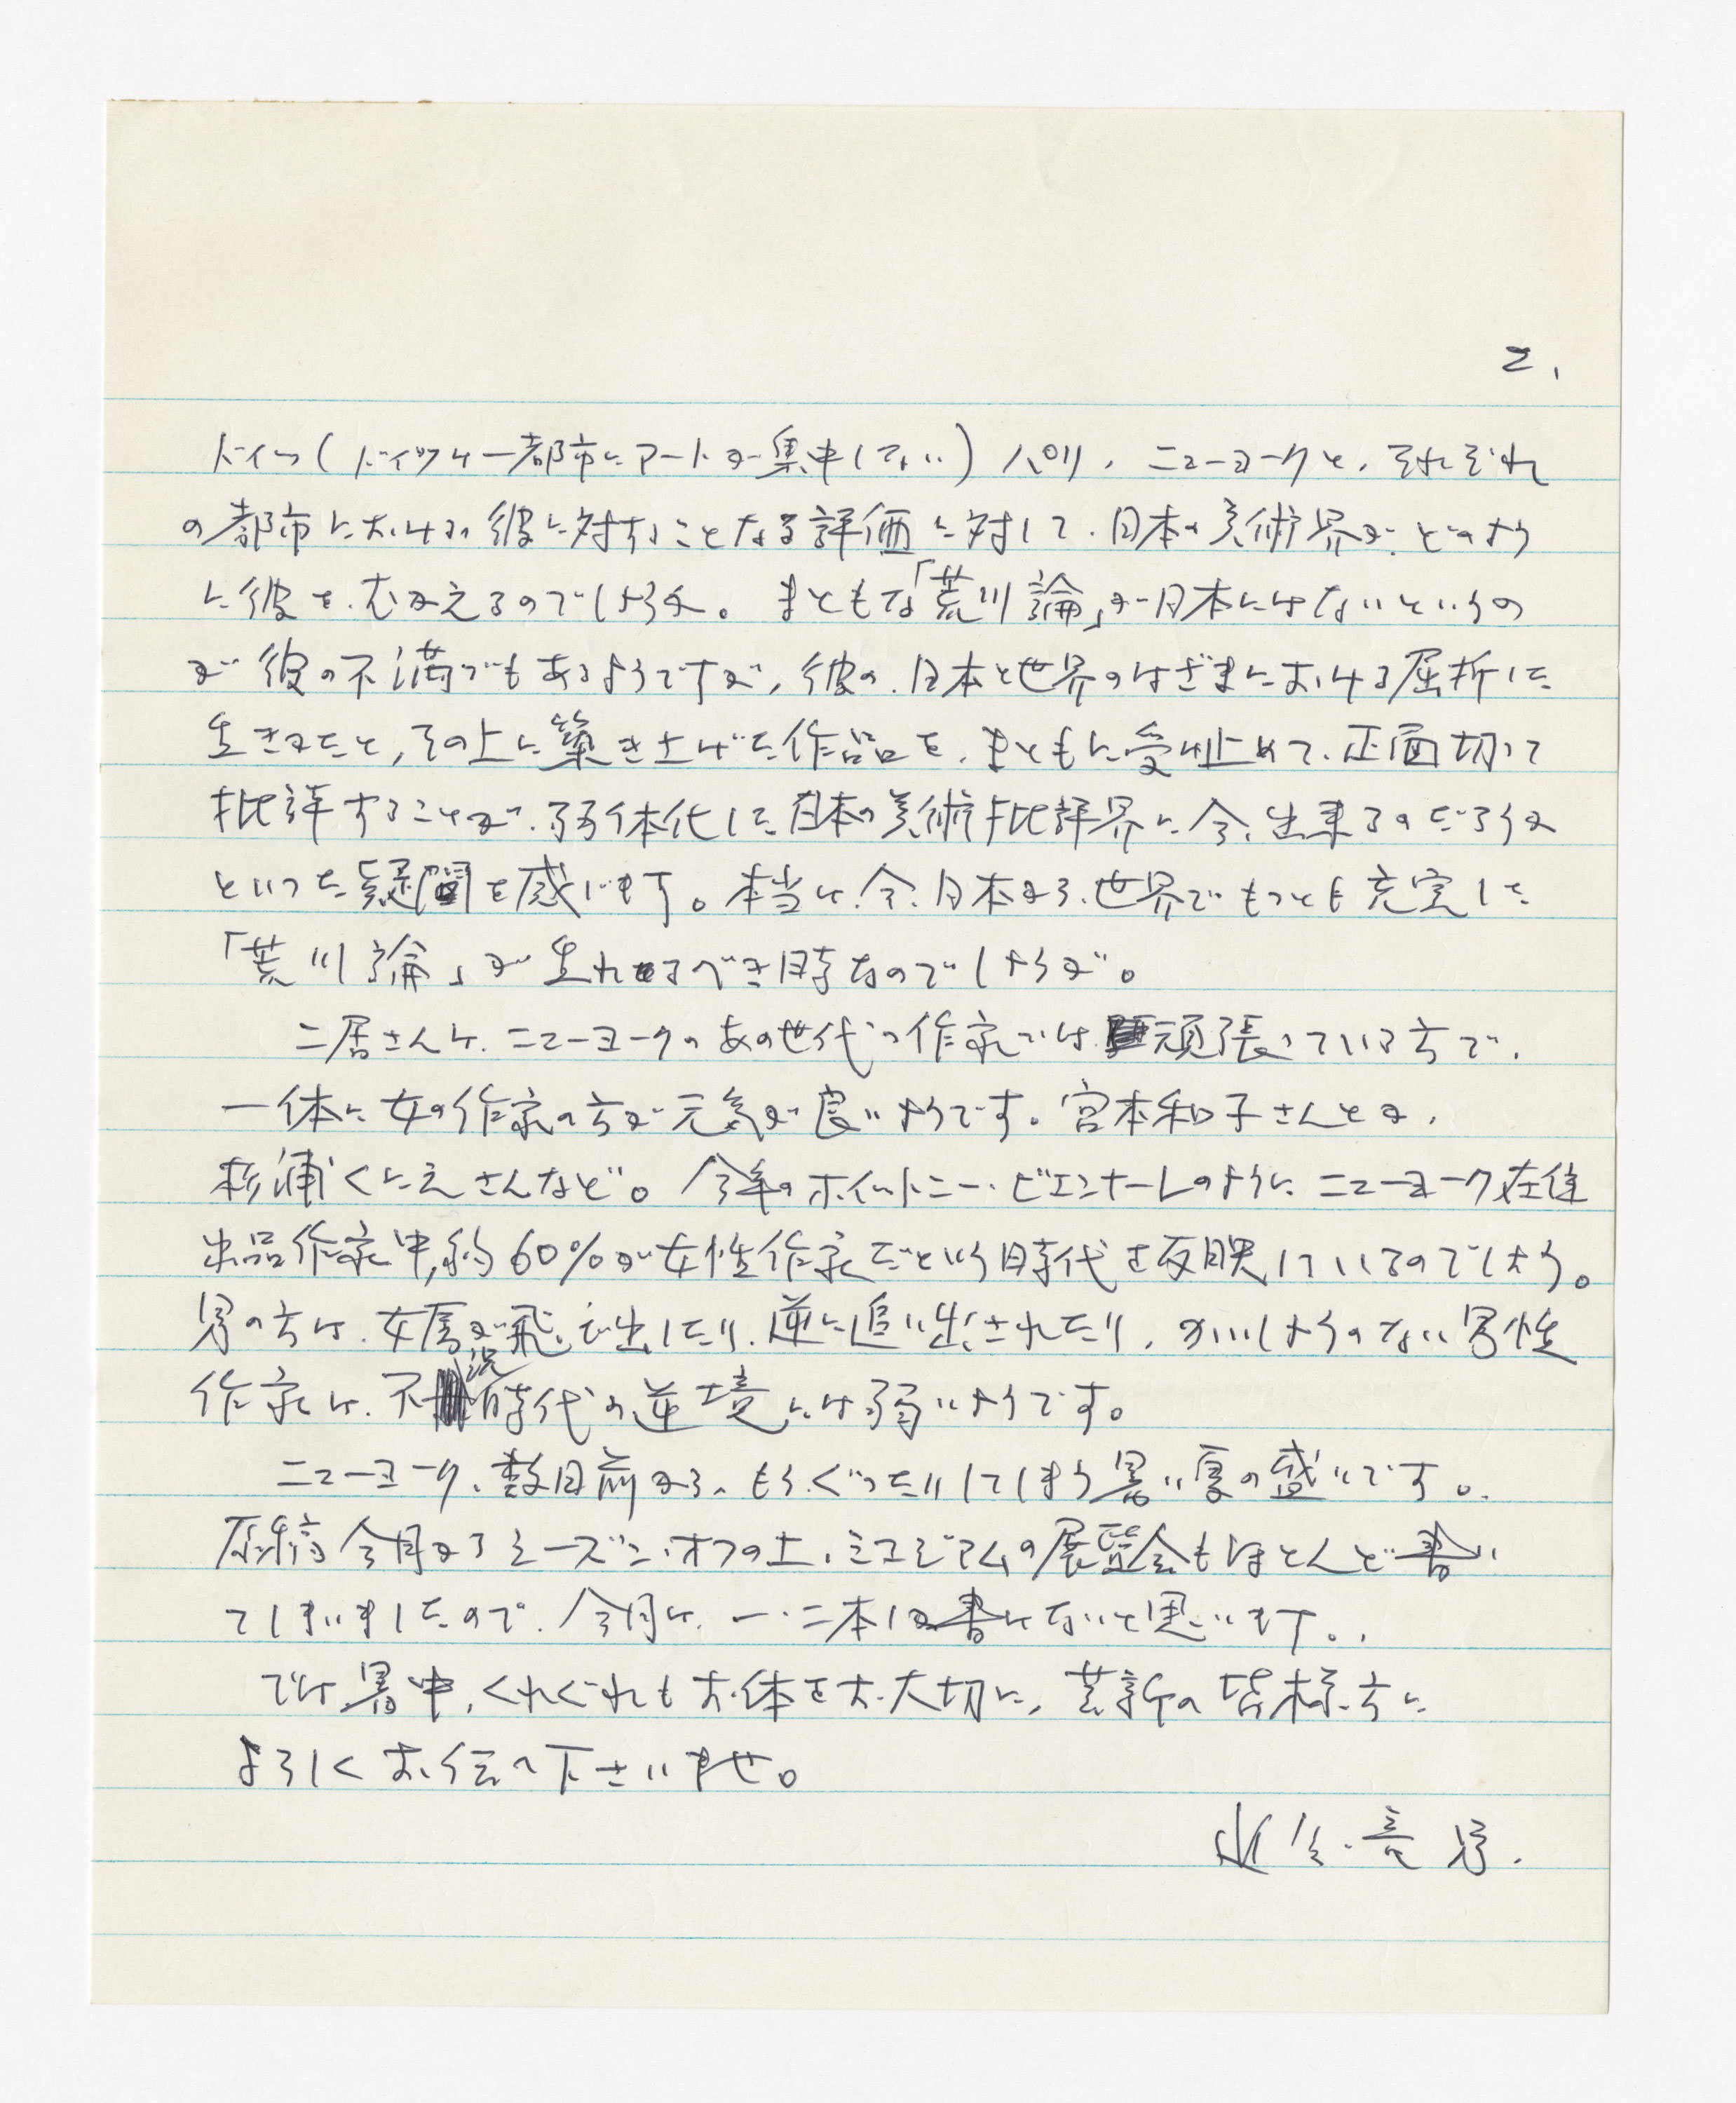 2.
ドイツ(ドイツは一都市にアートが集中してない)パリ、ニューヨークと、それぞれ
の都市における彼に対することなる評価に対して、日本の美術界が、どのよう
に彼を、むかえるのでしょうか。まともな「荒川論」が日本にはないというの
が彼の不満でもあるようですが、彼の、日本と世界のはざまにおける屈折に
生きたこと、その上に築き上げた作品を、まともに受け止めて、正面切って
批評することが、弱体化した日本の美術批評界に今、出来るのだろうか
といった疑問を感じます。本当は、今、日本から、世界でもっとも充実した
「荒川論」が生れるべき時なのでしょうが。
二居さんは、ニューヨークのあの世代の作家では頑張っている方で、
一体に女の作家の方が元気が良いようです。宮本和子さんとか、
杉浦くにえさんなど。今年のホイットニー・ビエンナーレのように ニューヨーク在住
出品作家中、約60%が女性作家だという時代を反映しているのでしょう。
男の方は、女房が飛び出したり、逆に追い出されたり、かいしょうのない男性
作家は、不況時代の逆境には弱いようです。
ニューヨーク、数日前から、もうぐったりしてしまう暑い夏の盛りです。
原稿 今月からシーズン・オフの上、ミュージアムの展覧会もほとんど書い
てしまいましたので、今月は、一・二本しか書けないと思います。
では暑中、くれぐれもお体をお大切に、芸新の皆様方に
よろしくお伝へ下さいませ。